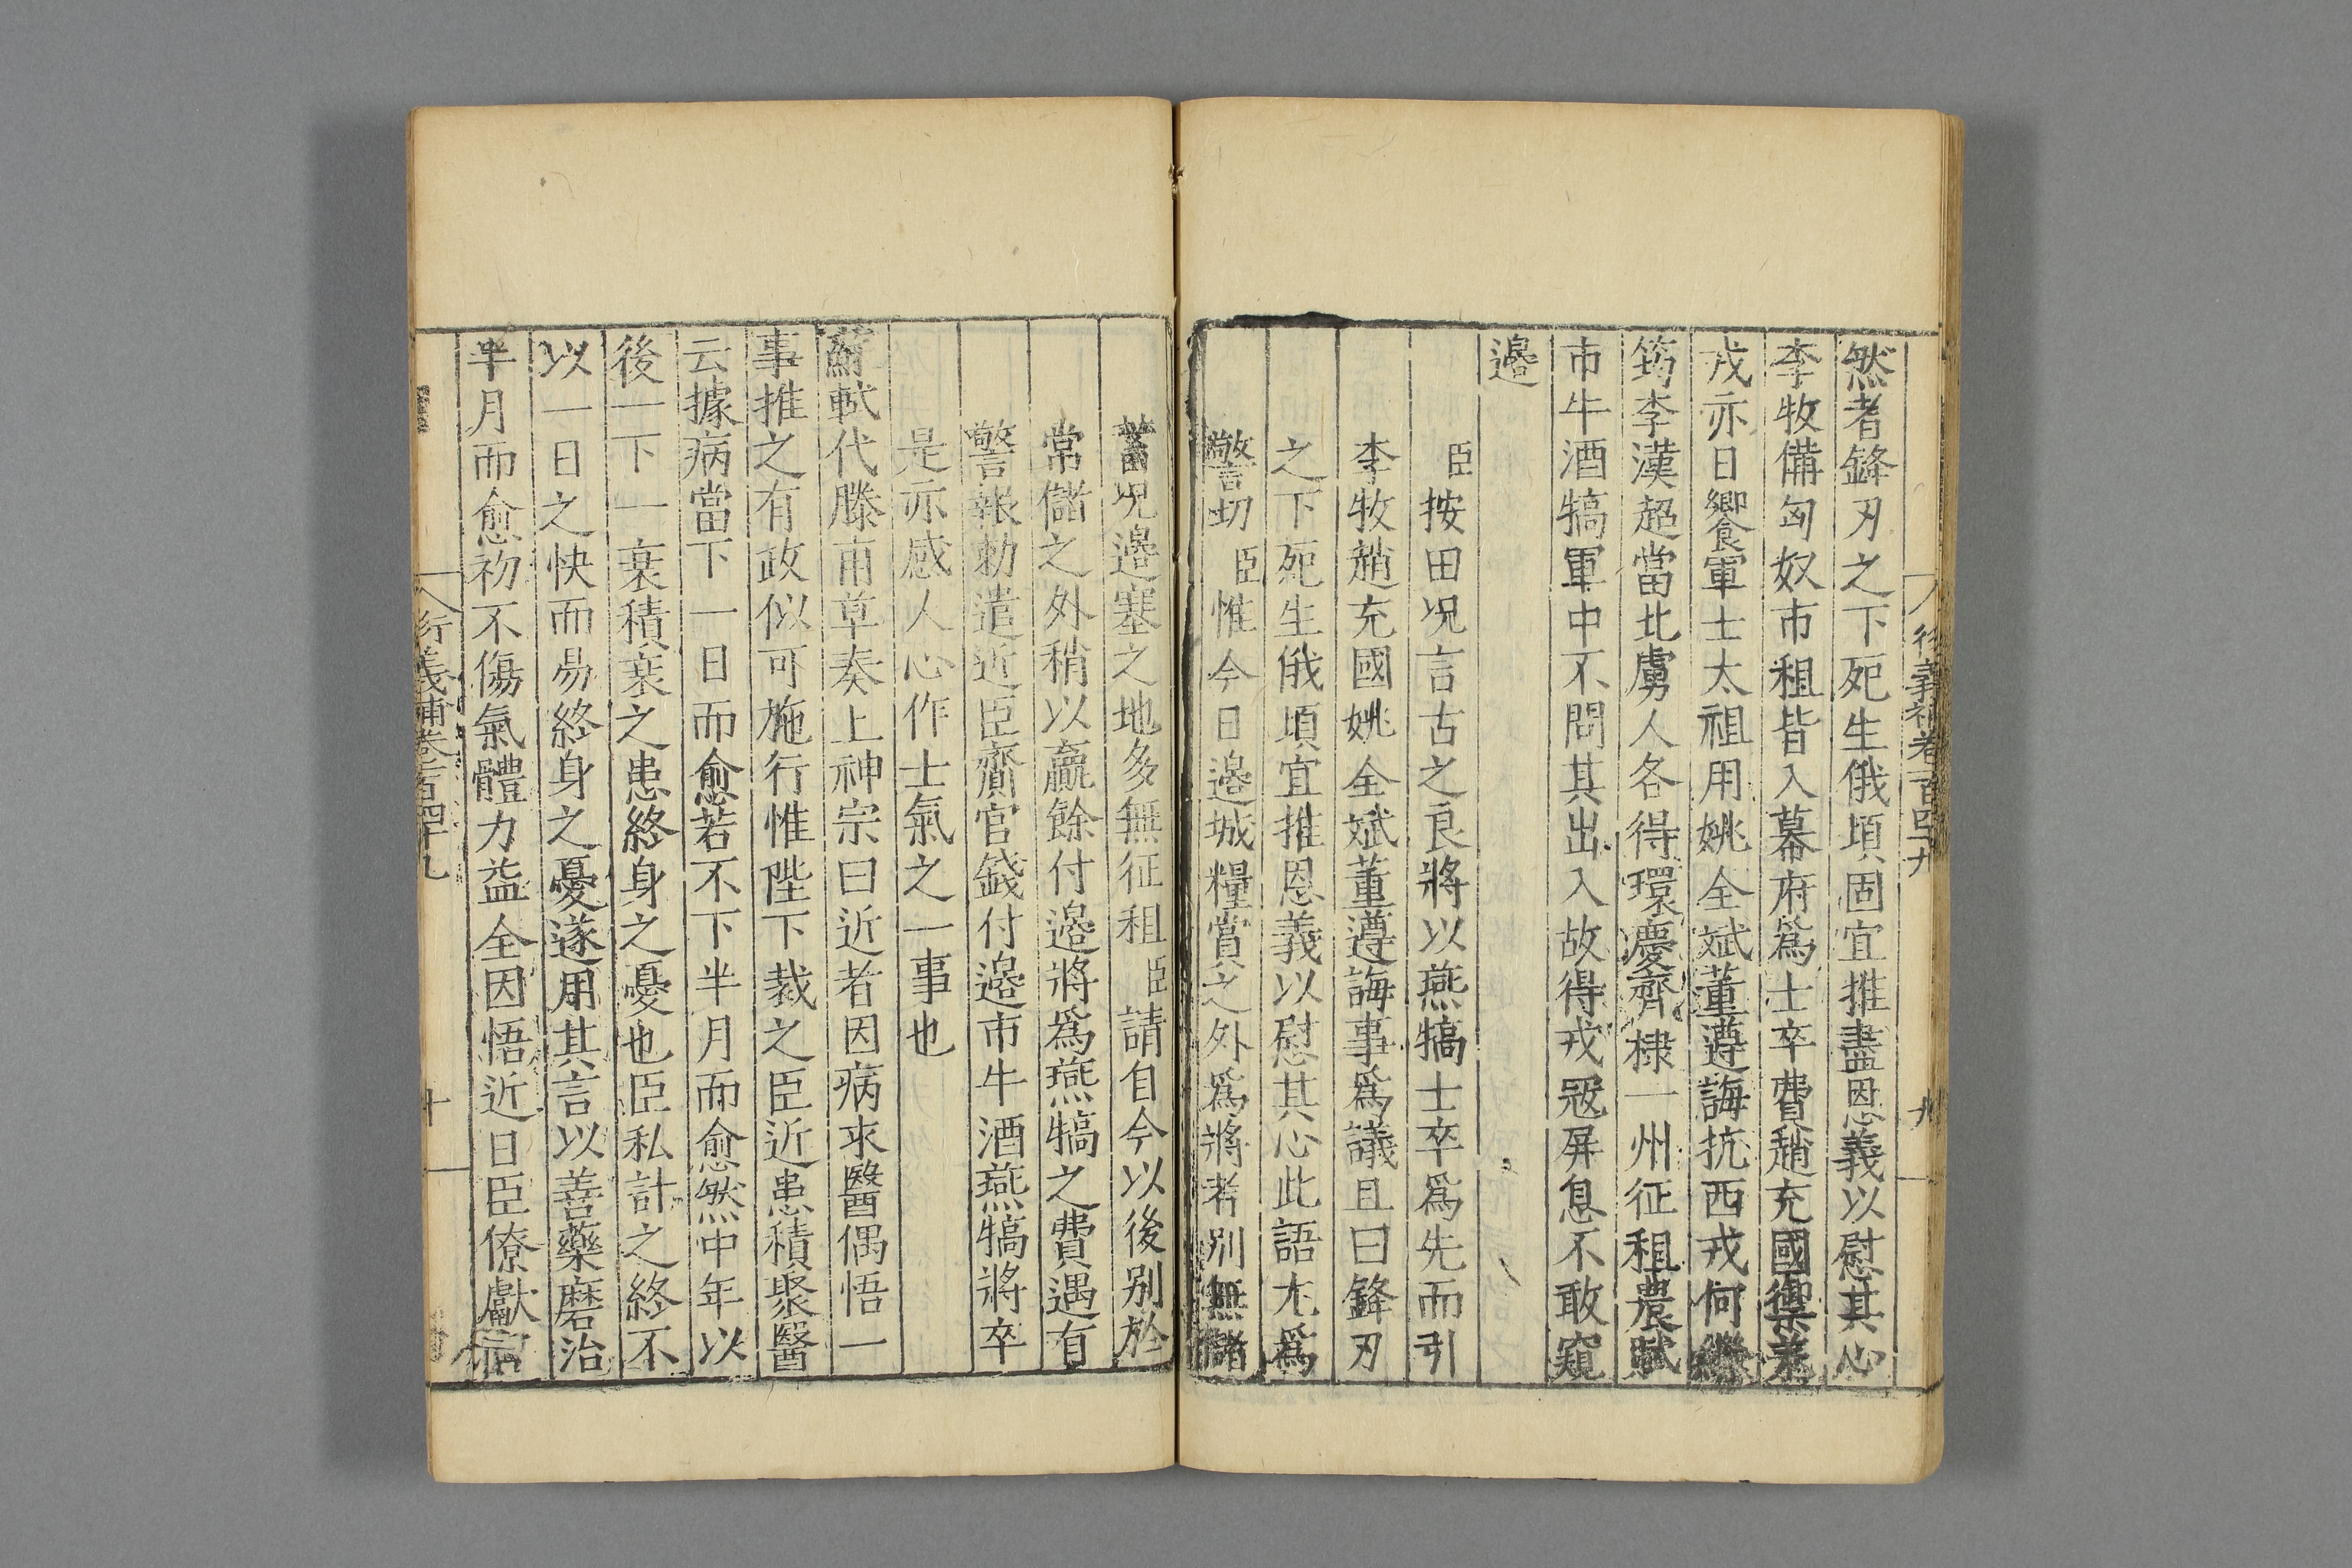 衍義補卷一百四十九
九
然者鋒刃之下死生俄頃固宜推盡恩義以慰其心
李牧備匈奴市租皆入幕府爲士卒費趙充國禦羌
戎亦日饗軍士太祖用姚全斌董遵誨抗西戎何繼
筠李漢超當北虜人各得環慶齊棣一州征租農賦
市牛酒犒軍中不問其出入故得戎冦屏息不敢窺
邊
臣按田況言古之良將以燕犒士卒爲先而引
李牧趙充國姚全斌董遵誨事爲議且曰鋒刃
之下死生俄頃宜推恩義以慰其心此語尤爲
警切臣惟今日邊城糧賞之外爲將者別無儲
蓄況邊塞之地多無征租臣請自今以後别於
常儲之外稍以贏餘付邊將爲燕犒之費遇有
警報勅遣近臣齎官錢付邊市牛酒燕犒將卒
是亦感人心作士氣之一事也
蘇軾代滕甫草奏上神宗曰近者因病求醫偶悟一
事推之有政似可施行惟陛下裁之臣近患積聚醫
云據病當下一日而愈若不下半月而愈然中年以
後一下一衰積衰之患終身之憂也臣私計之終不
以一日之快而易終身之憂遂用其言以善藥磨治
半月而愈初不傷氣體力益全因悟近日臣僚獻言
衍義補卷一百四十九
十